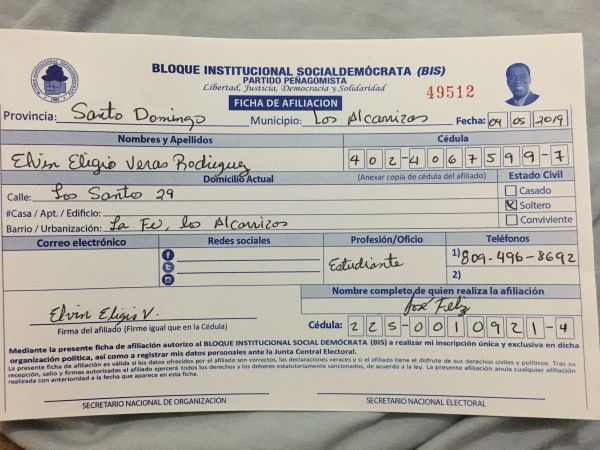 BLOQUE INSTITUCIONAL SOCIALDEMÓCRATA (BIS)
PARTIDO PEÑAGOMISTA
Libertad, Justicia, Democracia y Solidaridad
49512
FICHA DE AFILIACION
Provincia: Santo Domingo Municipio: Los Alcarrizos Fecha: 04 05 2019
Nombres y Apellidos Cédula
Elvin Eligio Veras Rodriguez 402-4067599-7
Domicilio Actual (Anexar copia de cédula del afiliado) Estado Civil
Calle: Los Santo 29 Casado
#Casa / Apt. / Edificio: X Soltero
Barrio / Urbanización: La Fe, los Alcarrizos Conviviente
Correo electrónico Redes sociales Profesión/Oficio Teléfonos
Estudiante 1) 809-496-8692
2)
Nombre completo de quien realiza la afiliación
Elvin Eligio V. José Feliz
Firma del afiliado (Firme igual que en la Cédula) Cédula: 225-0010921-4
Mediante la presente ficha de afiliación autorizo al BLOQUE INSTITUCIONAL SOCIAL DEMÓCRATA (BIS) a realizar mi inscripción única y exclusiva en dicha
organización política, así como a registrar mis datos personales ante la Junta Central Electoral.
La presente ficha de afiliación es válida si los datos ofrecidos por el afiliado son correctos, las declaraciones veraces y si el afiliado tiene el disfrute de sus derechos civiles y políticos. Tras su
recepción, sello y firmas autorizadas el afiliado ejercerá todos los derechos y los deberes estatutariamente sancionados, de acuerdo a la ley. La presente afiliación anula cualquier afiliación
realizada con anterioridad a la fecha que aparece en esta ficha.
SECRETARIO NACIONAL DE ORGANIZACIÓN SECRETARIO NACIONAL ELECTORAL